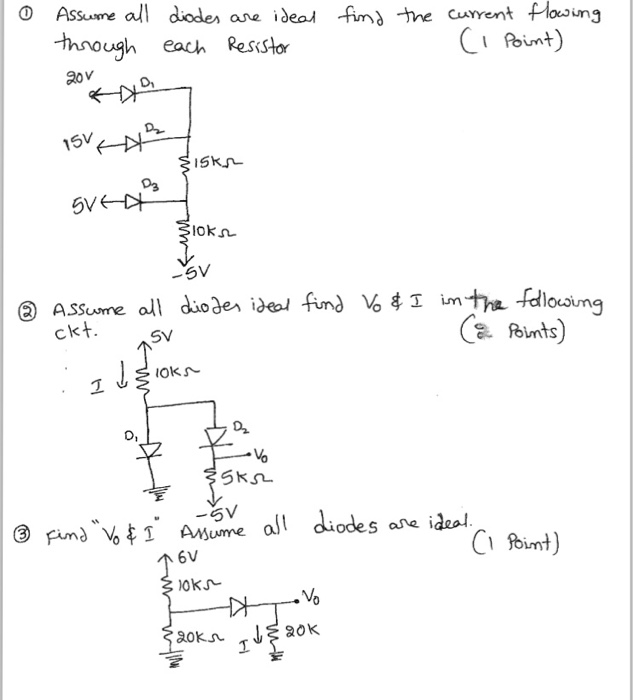 ① Assume all diodes are ideal find the current flowing
through each Resistor (1 Point)
20V D1
15V D2
15KΩ
5V D3
10KΩ
-5V
② Assume all diodes ideal find Vo & I in the following
ckt. (2 Points)
5V
I 10KΩ
D1 D2
Vo
5KΩ
-5V
③ Find "Vo & I" Assume all diodes are ideal.
(1 Point)
6V
10KΩ
Vo
20KΩ I 20K